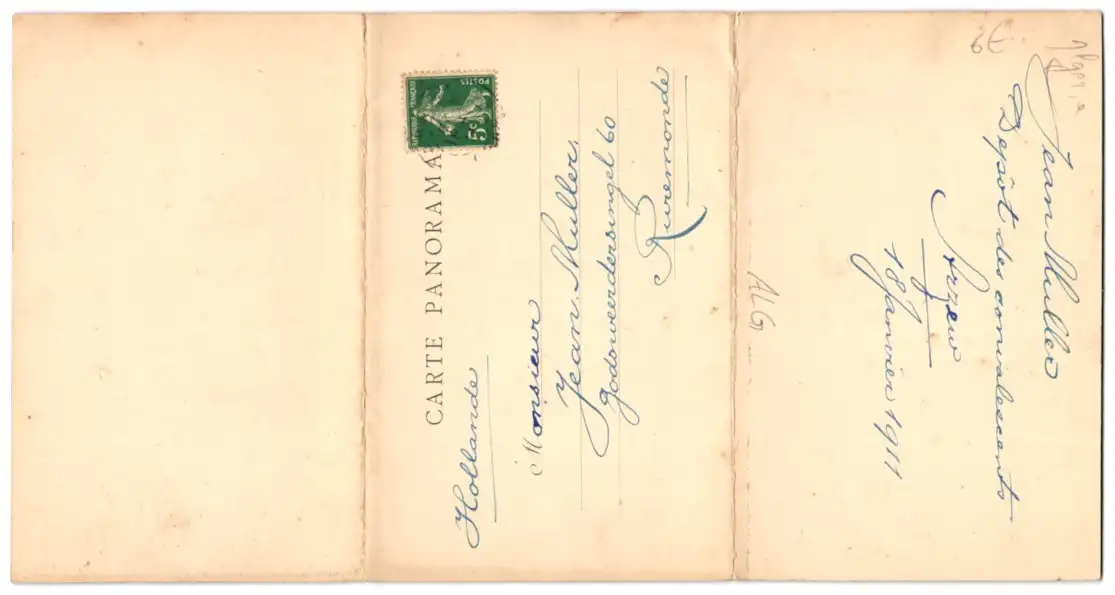 CARTE PANORAMA
RÉPUBLIQUE FRANÇAISE
POSTES
5c
Monsieur
Jean Muller,
Godsweerdersingel 60
Ruremonde
Hollande
ALG
6€
Jean Muller
Depôt des convalescents
Arzew
18 Janvier 1911